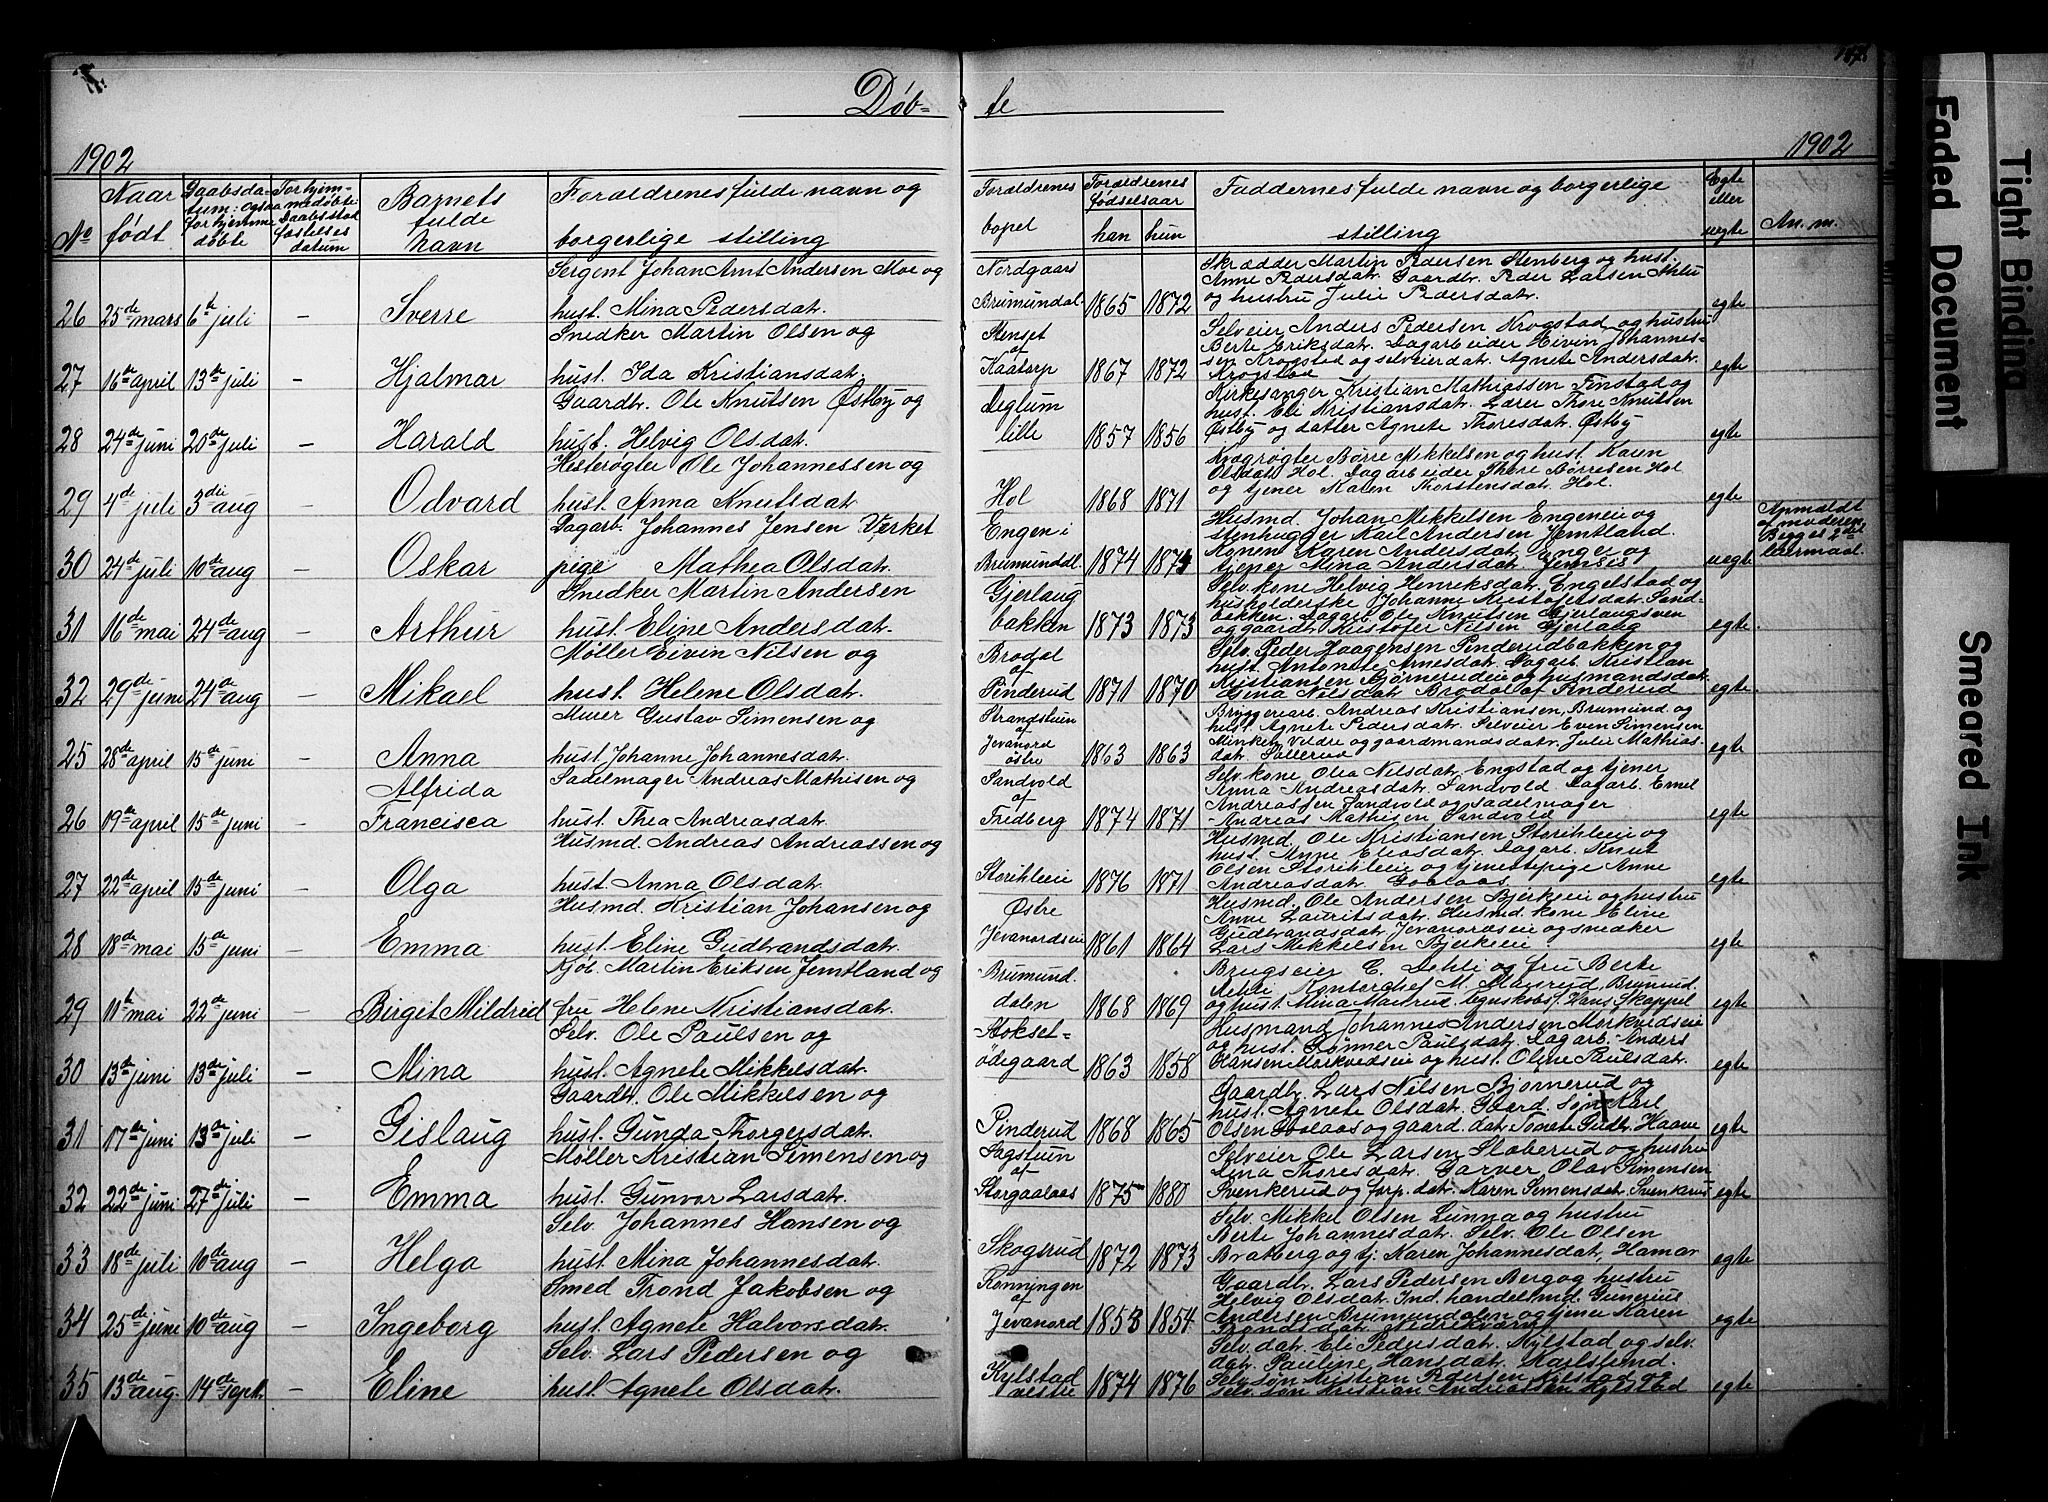 Døb= te
1902 1902
No
Naar født
Daabsdatum: ogsaa for hjemmedøbte
For hjemmedøbte Daabsstadfæstelses datum
Barnets fulde navn
Forældrenes fulde navn og borgerlige stilling
Forældrenes bopel
Forældrenes fødselsaar
han hun
Faddernes fulde navn og borgerlige stilling
Egte eller uegte
An. m.
26 25de mars 6te juli – Sverre
Sergent Johan Arnt Andersen Moe og
hust. Mina Pedersdat.
Nordgaars
Brumundal. 1865 1872
Skrædder Martin Pedersen Stenberg og hust.
Anne Pedersdat. Gaardbr. Peder Larsen
og hustru Julie Pedersdat.
egte
27 16de april 13de juli – Hjalmar
Snedker Martin Olsen og
hust. Ida Kristiansdat.
Stenset
af
Kaatorp 1867 1872
Selveier Anders Pedersen Krogstad og hustru
Berte Eriksdat. Dagarbeider Eivin Johannes-
sen Krogstad og selveierdat. Agnete Andersdat.
Krogstad
egte
28 24de juni 20de juli – Harald
Gaardbr. Ole Knutsen Østby og
hust. Helvig Olsdat.
Deglum
lille 1857 1856
Kirkesanger Kristian Mathiassen Finstad og
hust. Eli Kristiansdat. Lærer Thore Knutsen
Østby og datter Agnete Thoresdat. Østby
egte
29 4de juli 3die aug – Odvard
Hesterøgter Ole Johannessen og
hust. Anna Knutsdat.
Hol 1868 1871
Krøgrøgter Børre Mikkelsen og hust. Karen
Olsdat. Hol. Dagarbeider Thore Børresen Hol
og tjener Maren Thorstensdat. Hol.
egte
30 24de juli 10de aug – Oskar
Dagarb. Johannes Jensen Værket
pige Mathea Olsdat.
Engen i
Brumunddal. 1874 1871
Husmd. Johan Mikkelsen Engeneie og
stenhugger Karl Andersen Jemtland.
Konen Karen Andersdat. Enger og
tjener Mina Andersdat.
uegte
Anmeldt
af moderen
Begges 2det
leiermaal.
31 16de mai 24de aug – Arthur
Snedker Martin Andersen
hust. Eline Andersdat.
Gjerlaug
bakken 1873 1873
Selv. kone Helvig Henriksdat. Engelstad og
husholderske Johanne Kristofersdat. Sand-
bakken. Dagarb. Ole Knutsen Gjerlaugsven
og gaardbr. Kristofer Nilsen Gjerlaug
egte
32 29de juni 24de aug – Mikael
Møller Eivin Nilsen og
hust. Helene Olsdat.
Brodal
af
Pinderud 1871 1870
Selv. Peder Haagensen Pinderudbakken og
hust. Antonete Arnesdat. Dagarb. Kristian
Kristiansen Bjørnerudeie og husmandsdat.
Gina Nilsdat. Brodal af Pinderud
egte
25 28de april 15de juni – Anna
Murer Gustav Simensen og
hust. Johanne Johannesdat.
Strandstuen
af
Jevanord
østre 1863 1863
Bryggeriarb. Andreas Kristiansen, Brumund og
hust. Agnete Pedersdat. Selveier Even Simensen
Minken Veldre og gaardmandsdat. Julie Mathias-
dat. Sollerud
egte
26 19de april 15de juni – Alfrida
Francisca
Sadelmager Andreas Mathisen og
hust. Thea Andreasdat.
Sandvold
af
Fredberg 1874 1871
Selv. kone Olea Nilsdat. Engstad og tjener
Anna Andreasdat. Sandvold. Dagarb. Emel
Andreassen Sandvold og sadelmager
Andreas Mathisen Sandvold
egte
27 22de april 15de juni – Olga
Husmd. Andreas Andreassen og
hust. Anna Olsdat.
Storihleeie 1876 1871
Husmd. Ole Kristiansen Storihleeie og
hust. Anne Eliasdat. Dagarb. Knut
Olsen Storihleeie og tjenestepige Anne
Andreasdat. Gaalaas
egte
28 18de mai 15de juni – Emma
Husmd. Kristian Johansen og
hust. Eline Gudbrandsdat.
Østre
Jevanordseie 1861 1864
Husmd. Ole Andersen Bjerkeeie og hustru
Anne Lauritsdat. Husmd. kone Eline
Gudbrandsdat. Jevanordseie og snedker
Lars Mikkelsen Bjerkeeie
egte
29 11te mai 22de juni – Birgit Mildred
Kjøb. Martin Eriksen Jemtland og
fru Helene Kristiansdat.
Brumund.
dalen 1868 1869
Brugseier C. Dehli og fru Berte
Dehli Kontorchef M. Maurud, Brumund.
og hust. Mina Maurud, Hans Skappel
egte
30 13de juni 13de juli – Mina
Selv. Ole Paulsen og
hust. Agnete Mikkelsdat.
Stokset=
ødegaard 1863 1858
Husmand Johannes Andersen Morkvedseie
og hust. Rønner Paulsdat. Dagarb. Anders
Olansen Morkvedseie og hust. Oline Paulsdat.
egte
31 17de juni 13de juli – Gislaug
Gaardbr. Ole Mikkelsen og
hust. Gunda Thorgersdat.
Pinderud 1868 1865
Gaardbr. Lars Nilsen Bjørnerud og
hust. Agnete Olsdat. Gaard. søn Karl
Olsen Gaalaas og gaard. dat. Tonete Gudbr. Haave
egte
32 22de juni 27de juli – Emma
Møller Kristian Simensen og
hust. Gunvor Larsdat.
Sagstuen
af
Storgaalaas 1875 1880
Selveier Ole Larsen Slaberud og hustru
Lina Thoresdat. Garver Olav Simensen
Svenkerud og forp. dat. Karen Simensdat. Svenkerud
egte
33 18de juli 10de aug – Helga
Selv. Johannes Hansen og
hust. Mina Johannesdat.
Skogsrud 1872 1873
Selv. Mikkel Olsen Lunna og hustru
Berte Johannesdat. Selv. Ole Olsen
Bratberg og tj. Karen Johannesdat, Hamar
egte
34 25de juni 10de aug – Ingeborg
Smed Trond Jakobsen og
hust. Agnete Halvorsdat.
Rønningen
af
Jevanord 1853 1854
Gaardbr. Lars Pedersen Berg og hustru
Helvig Olsdat. Ind. handelsmd. Gunerius
Andersen Brumunddalen og tjener Karen
Trondsdat.
egte
35 13de aug. 14de sept. – Eline
Selv. Lars Pedersen og
hust. Agnete Olsdat.
Kylstad
vestre 1874 1876
Selv. dat. Eli Pedersdat. Kylstad og selv.
dat. Pauline Hansdat. Karlslund.
Selv. søn Kristian Pedersen Kylstad og
selv. søn Kristian Andreassen Kylstad
egte
Tight Binding
Faded Document
Smeared Ink